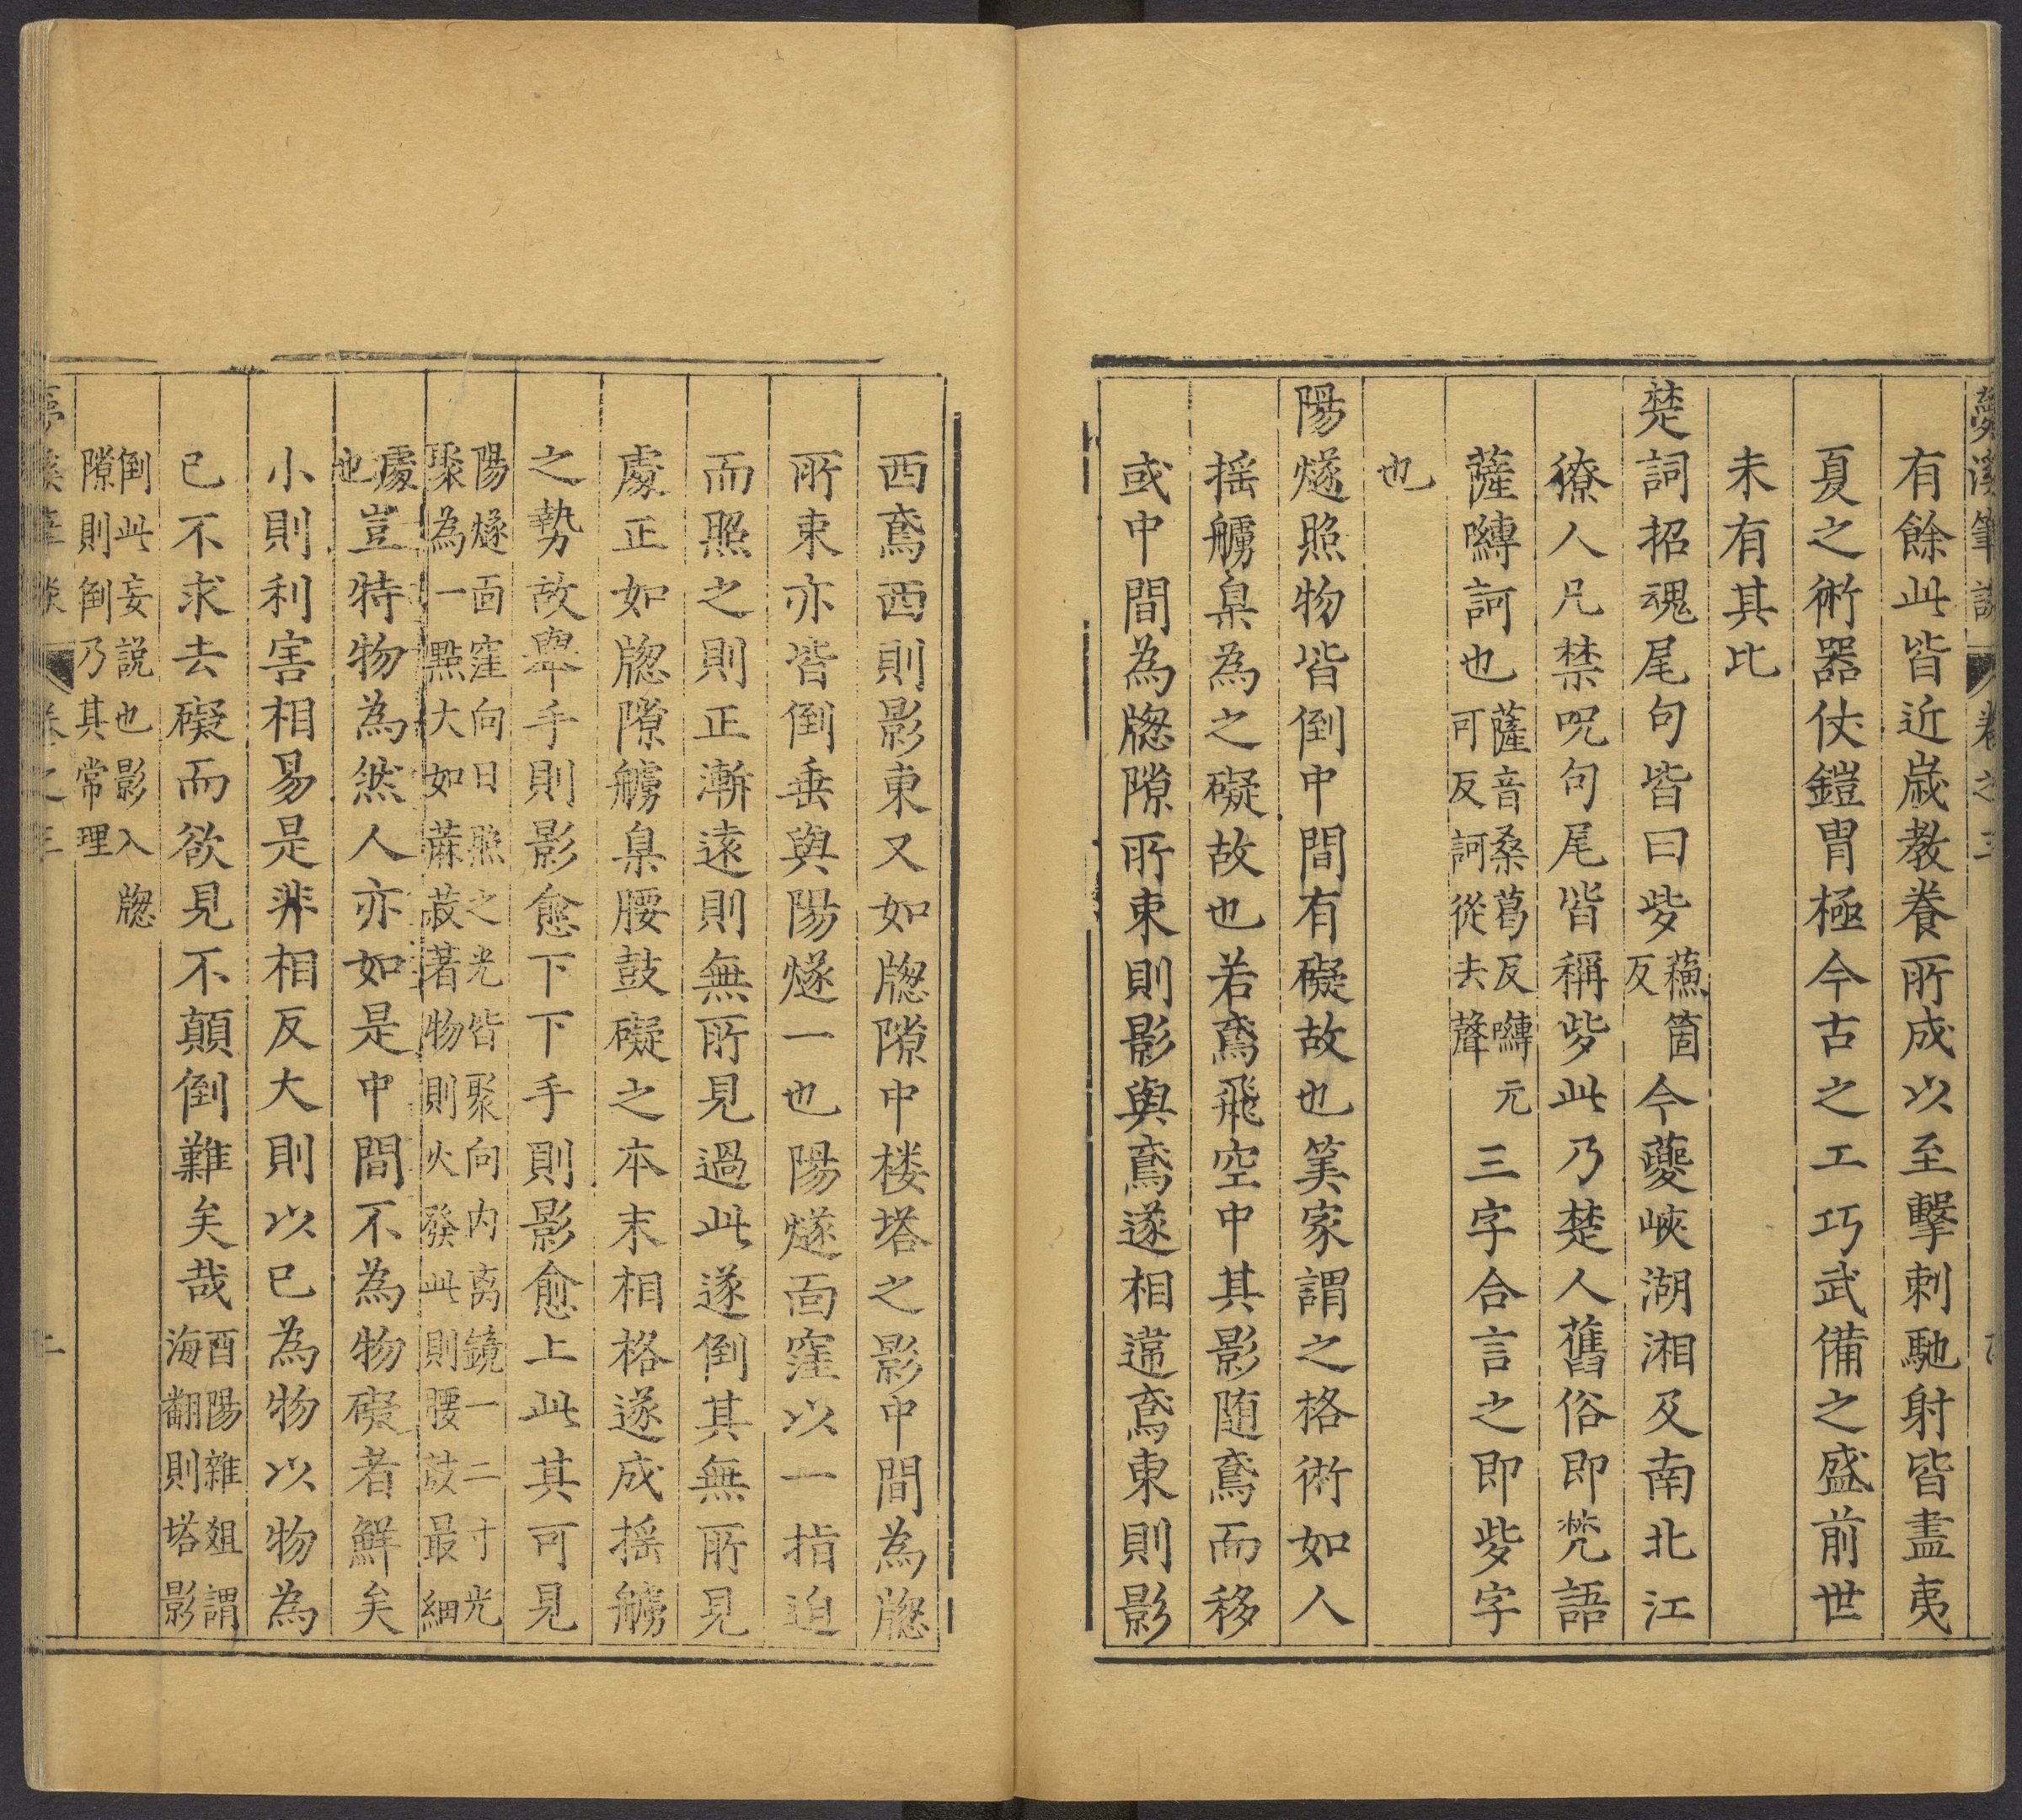 夢溪筆談 卷之三
有餘此皆近歲教養所成以至擊刺馳射皆盡夷
夏之術器仗鎧冑極今古之工巧武備之盛前世
未有其比
楚詞招魂尾句皆曰些蘓箇反今夔峽湖湘及南北江
獠人凡禁呪句尾皆稱些此乃楚人舊俗即梵語
薩嚩訶也薩音桑葛反嚩无可反訶從去聲三字合言之即些字
也
陽燧照物皆倒中間有礙故也筭家謂之格術如人
搖艣臬為之礙故也若鳶飛空中其影隨鳶而移
或中間為牎隙所束則影與鳶遂相違鳶東則影
西鳶西則影東又如牎隙中楼塔之影中間為牎
所束亦皆倒垂與陽燧一也陽燧面窪以一指迫
而照之則正漸遠則無所見過此遂倒其無所見
處正如牎隙艣臬腰鼓礙之本末相格遂成搖艣
之勢故舉手則影愈下下手則影愈上此其可見
陽燧面窪向日照之光皆聚向内离鏡一二寸光
聚為一點大如蔴菽著物則火發此則腰鼓最細
處也豈特物為然人亦如是中間不為物礙者鮮矣
小則利害相易是非相反大則以己為物以物為
已不求去礙而欲見不顛倒難矣哉酉陽雜俎謂海翻則塔影
倒此妄説也影入牎
隙則倒乃其常理